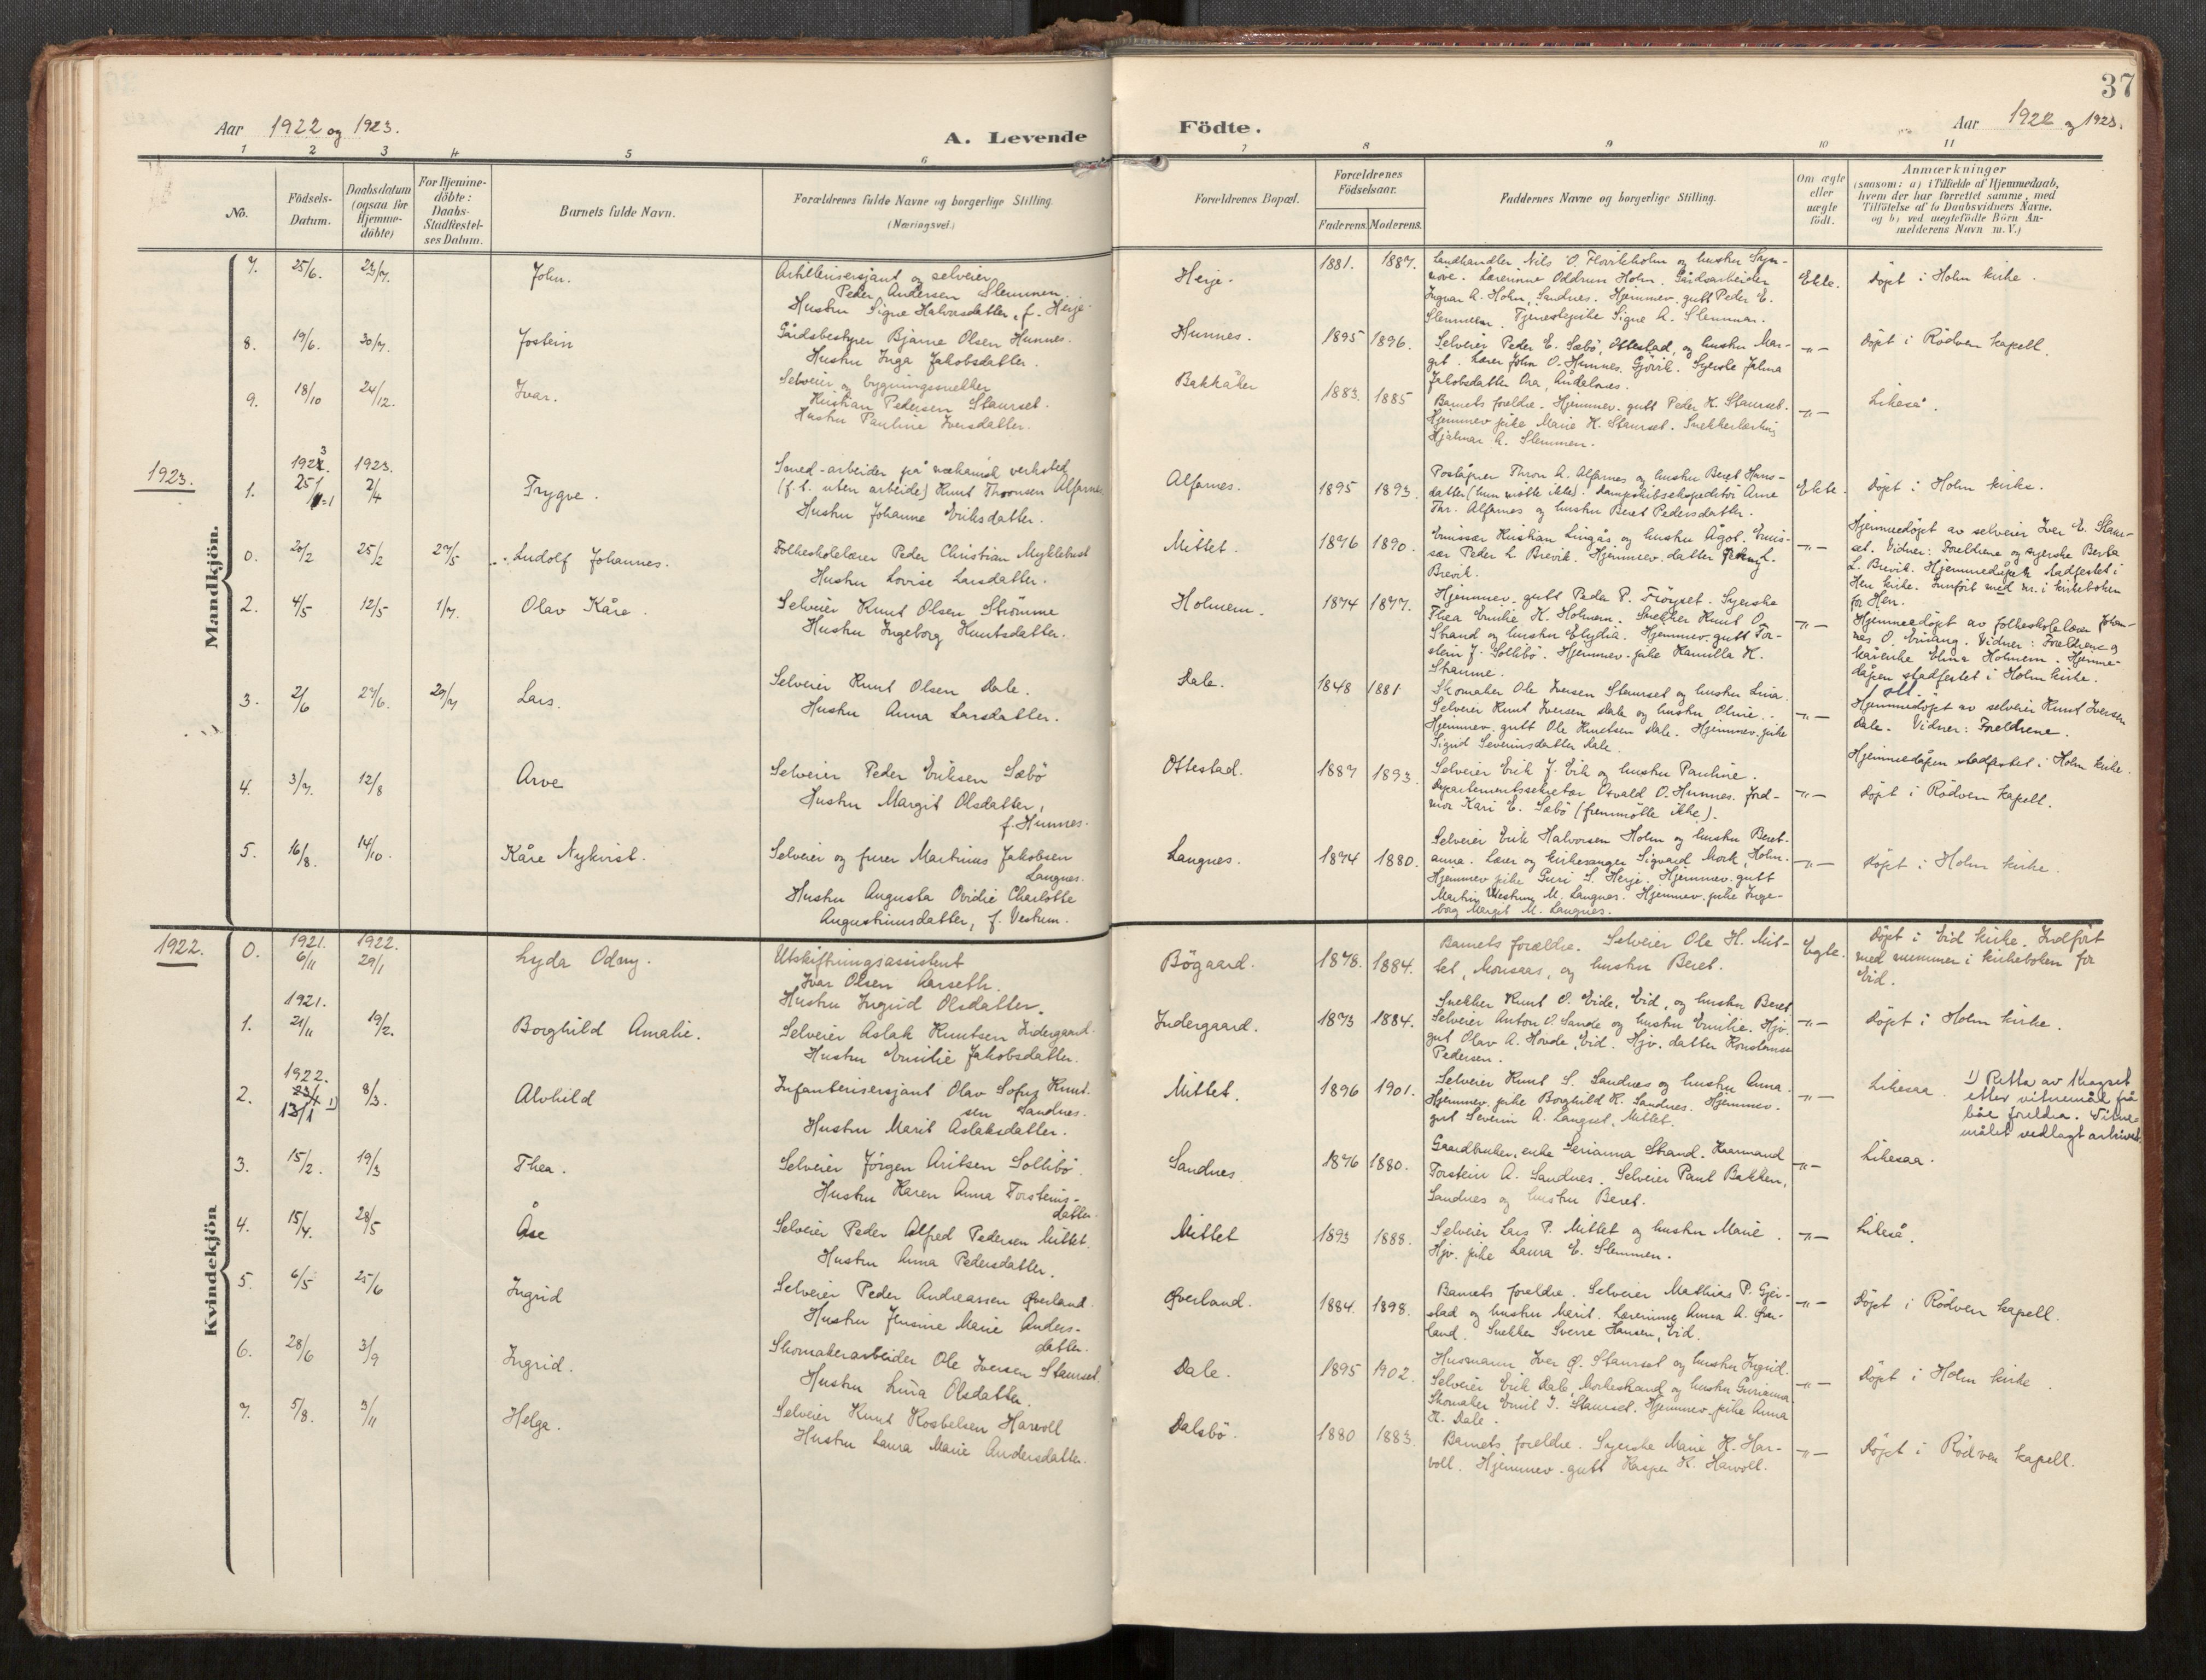 37
Aar 1922 og 1923.
A. Levende
Födte.
Aar 1922 og 1923.
1 2 3 4 5 6 7 8 9 10 11
No.
Födsels-Datum.
Daabsdatum (ogsaa for Hjemme-döbte)
For Hjemme-döbte: Daabs-Stadfæstel-ses Datum.
Barnets fulde Navn.
Forældrenes fulde Navne og borgerlige Stilling.
(Næringsvei.)
Forældrenes Bopæl.
Forældrenes Födselsaar.
Faderens. Moderens.
Faddernes Navne og borgerlige Stilling.
Om ægte eller uægte födt.
Anmærkninger
(saasom: a) i Tilfælde af Hjemmedaab, hvem der har forrettet samme, med Tilföielse af to Daabsvidners Navne, og b) ved uægtefödte Börn An-melderens Navn m. V.)
Mandkjön.
7. 25/6. 23/7. John.
Artillerisersjant og selveier
Peder Andersen Slemmen.
Hustru Signe Halvorsdatter, f. Herje.
Herje. 1881. 1887.
Landhandler Nils O. Floviteholm og hustru Syn-
növe. Lærerinne Oddrun Holm. Gårdsarbeider
Ingvar A. Holm, Sandnes. Hjemmev. gutt Peder E.
Slemmen. Tjenestepike Signe A. Slemmen.
Ekte. Döpt i Holm kirke.
8. 19/6. 30/7. Jostein
Gårdsbestyrer Bjarne Olsen Hunnes.
Hustru Inga Jakobsdatter.
Hunnes. 1895 1896.
Selveier Peder E. Sæbö, Ottestad, og hustru Mar-
git. Lærer John O. Hunnes, Gjövik. Syerske Jalma
Jakobsdatter Ora, Åndalsnes.
-"- Döpt i Rödven kapell.
9. 18/10 24/12. Ivar.
Selveier og bygningssnekker
Kristian Pedersen Staurset.
Hustru Pauline Iversdatter.
Bakkåker 1883. 1885
Barnets foreldre. Hjemmev. gutt Peder K. Staurset.
Hjemmev pike Marie K. Staurset. Snekkerlærling
Hjalmar A. Slemmen.
-"- Likeså.
1923.
1923. 1923.
1. 25/1 2/4 Trygve.
Smed-arbeider på mekanisk verksted
(f. t. uten arbeide) Knut Thronsen Alfarnes
Hustru Johanne Eriksdatter.
Alfarnes. 1895 1893.
Poståpner Thron A. Alfarnes og hustru Beret Hans-
datter (hun mötte ikke). Dampskibsekspeditör Arne
Thr. Alfarnes og hustru Beret Pedersdatter.
Ekte. Döpt i Holm kirke.
0. 20/2 25/2 27/5 Ludolf Johannes.
Folkeskolelærer Peder Christian Myklebust
Hustru Lovise Larsdatter.
Mittet. 1876 1890.
Emissær Kristian Lingås og hustru Ågot. Emis-
sær Peder L. Brevik. Hjemmev. datter L.
Brevik.
-"- Hjemmedöpt av selveier Iver E. Staur-
set. Vidner: Foreldrene og syerske Berta
L. Brevik. Hjemmedåpen stadfestet i
Hen kirke. Innfört med nr. i kirkeboken
for Hen.
2. 4/5 12/5 1/7. Olav Kåre.
Selveier Knut Olsen Strömme
Hustru Ingeborg Knutsdatter.
Holmem. 1874 1877.
Hjemmev. gutt Peder P. Fröyset. Syerske
Thea Emilie K. Holmem. Snekker Knut O.
Strand og hustru Elydia. Hjemmev. gutt Tor-
stein J. Sollibö. Hjemmev. pike Kamilla K.
Stranne.
-"- Hjemmedöpt av folkeskolelærer Johan-
nes O. Ervang. Vidner: Foreldrene og
Elina Holmem. Hjemme-
dåpen stadfestet i Holm kirke.
3. 2/6 27/6. 29/7 Lars.
Selveier Knut Olsen Dale.
Hustru Anna Larsdatter.
Dale. 1848 1881
Skomaker Ole Iversen Staurset og hustru Lina.
Selveier Knut Iversen Dale og hustru Oline.
Hjemmev. gutt Ole Knutsen Dale. Hjemmev. pike
Sigrid Severinsdatter Dale.
-"- Hjemmedöpt av selveier Knut Iversen
Dale. Vidner: Foreldrene.
Hjemmedåpen stadfestet i Holm kirke.
4. 3/7. 12/8 Arve
Selveier Peder Eriksen Sæbö
Hustru Margit Olsdatter,
f. Hunnes.
Ottestad. 1887 1893.
Selveier Erik J. Eik og hustru Pauline.
Departementssekretær Osvald O. Hunnes. Jord-
mor Kari E. Sæbö (fremmötte ikke).
-"- Döpt i Rödven kapell.
5. 16/8. 14/10. Kåre Nykvist.
Selveier og furer Martinus Jakobsen
Langnes.
Hustru Augusta Ovidie Charlotte
Augustinusdatter, f. Vestrum.
Langnes. 1874 1880.
Selveier Erik Halvorsen Holm og hustru Beret-
anna. Lærer og kirkesanger Sigvard Mork, Holm.
Hjemmev pike Guri S. Herje. Hjemmev. gutt
Martin Westrum M. Langnes. Hjemmev. pike Inge-
borg Margit M. Langnes.
-"- Döpt i Holm kirke.
1922.
Kvindekjön
1921. 1922.
0. 6/11 29/1 Lyda Odny.
Utskiftningsassistent
Ivar Olsen Aarseth.
Hustru Ingrid Olsdatter.
Bögaard. 1878. 1884.
Barnets forældre. Selveier Ole H. Mit-
tet, Monsaas, og hustru Beret.
Egte. Döpt i Eid kirke. Indfört
med nummer i kirkeboken for
Eid.
1921.
1. 21/11 19/2. Borghild Amalie.
Selveier Aslak Knutsen Indergaard.
Hustru Emilie Jakobsdatter.
Indergaard. 1873 1884.
Snekker Knut O. Eide, Eid, og hustru Beret
Selveier Anton O. Sande og hustru Emilie. Hjv.
gut Olav A. Hovde, Eid. Hjv. datter Konstanse
Pedersen.
-"- Döpt i Holm kirke.
1922.
2. 23/1 1) 13/1 8/3. Alvhild
Infanterisersjant Olav Sofus Knut-
sen Sandnes.
Hustru Marit Aslaksdatter.
Mittet. 1896 1901.
Selveier Knut S. Sandnes og hustru Anna.
Hjemmev. pike Borghild K. Sandnes. Hjemmev.
gut Severin A. Langset, Mittet.
-"- Likesaa. 1) Retta av
etter vitnemål frå
båe foreldra. Vitne-
målet vedlagt arkivet
3. 15/2. 19/3 Thea.
Selveier Jörgen Aritsen Sollibö.
Hustru Karen Anna Torsteins-
datter.
Sandnes 1876 1880.
Gaardbruker, enke Serianna Strand. Kaarmand
Torstein A. Sandnes. Selveier Paul Bakken,
Sandnes og hustru Beret.
-"- Likesaa.
4. 15/4. 28/5 Åse
Selveier Peder Alfred Pedersen Mittet.
Hustru Anna Pedersdatter.
Mittet 1893 1888.
Selveier Lars P. Mittet og hustru Marie.
Hjv. pike Laura E. Slemmen.
-"- Likeså.
5. 6/5 25/6 Ingrid
Selveier Peder Andreassen Øverland.
Hustru Jensine Marie Anders-
datter.
Øverland. 1884. 1898.
Barnets foreldre. Selveier Mathias P. Gjer-
stad og hustru Marit. Lærerinne Anna A. Øver-
land. Snekker Sverre Hansen, Eid.
-"- Döpt i Rödven kapell.
6. 28/6 3/9 Ingrid.
Skomakerarbeider Ole Iversen Staurset.
Hustru Lina Olsdatter.
Dale. 1895 1902.
Husmann Iver Ø. Staurset og hustru Ingrid.
Selveier Erik Dale, Morkestrand og hustru Gurianna.
Skomaker Emil I. Staurset. Hjemmev. pike Anna
K. Dale.
-"- Döpt i Holm kirke.
7. 5/8. 3/11 Helga.
Selveier Knut Kostelsen Harvoll
Hustru Laura Marie Andersdatter.
Dalsbö. 1880 1883.
Barnets foreldre. Syerske Marie K. Har-
voll. Hjemmev. gutt Kasper K. Harvoll.
-"- Döpt i Rödven kapell.